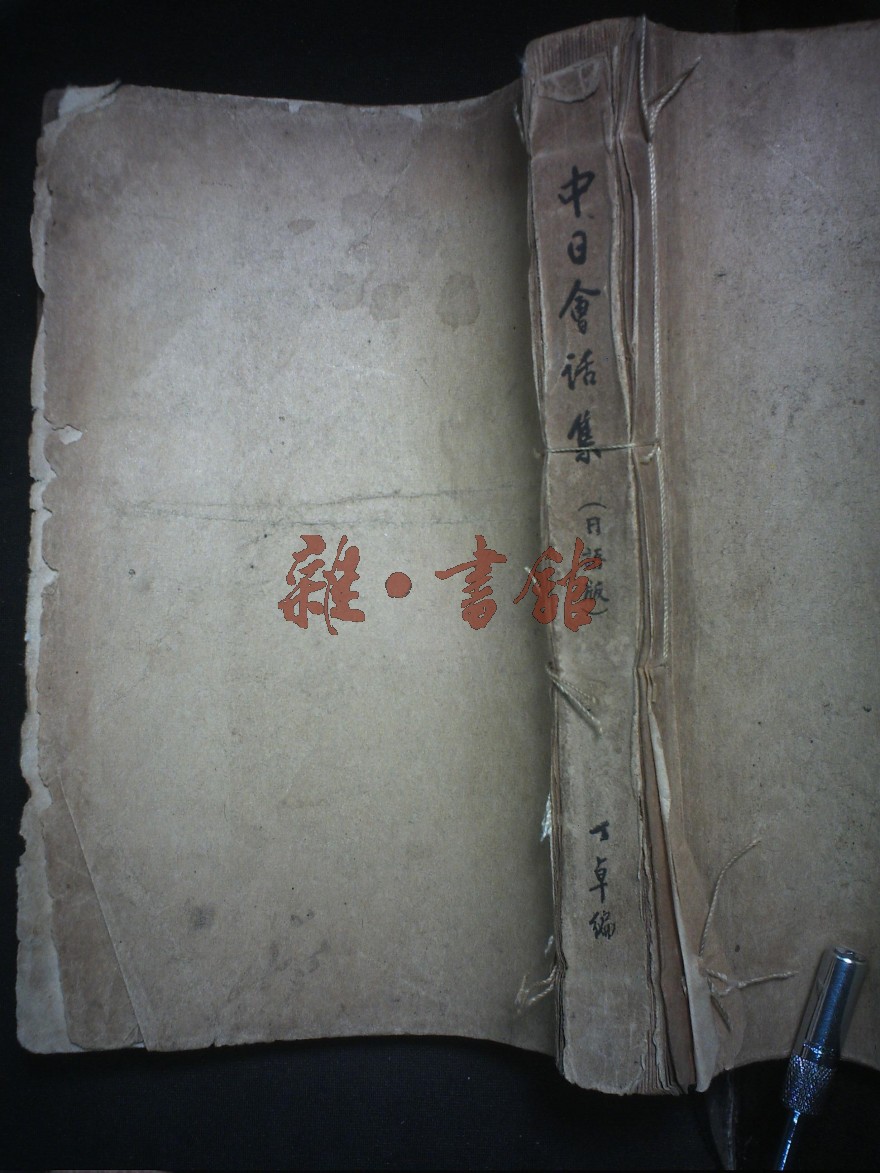 中日會话集
(日語版)
丁卓編
雜·書館